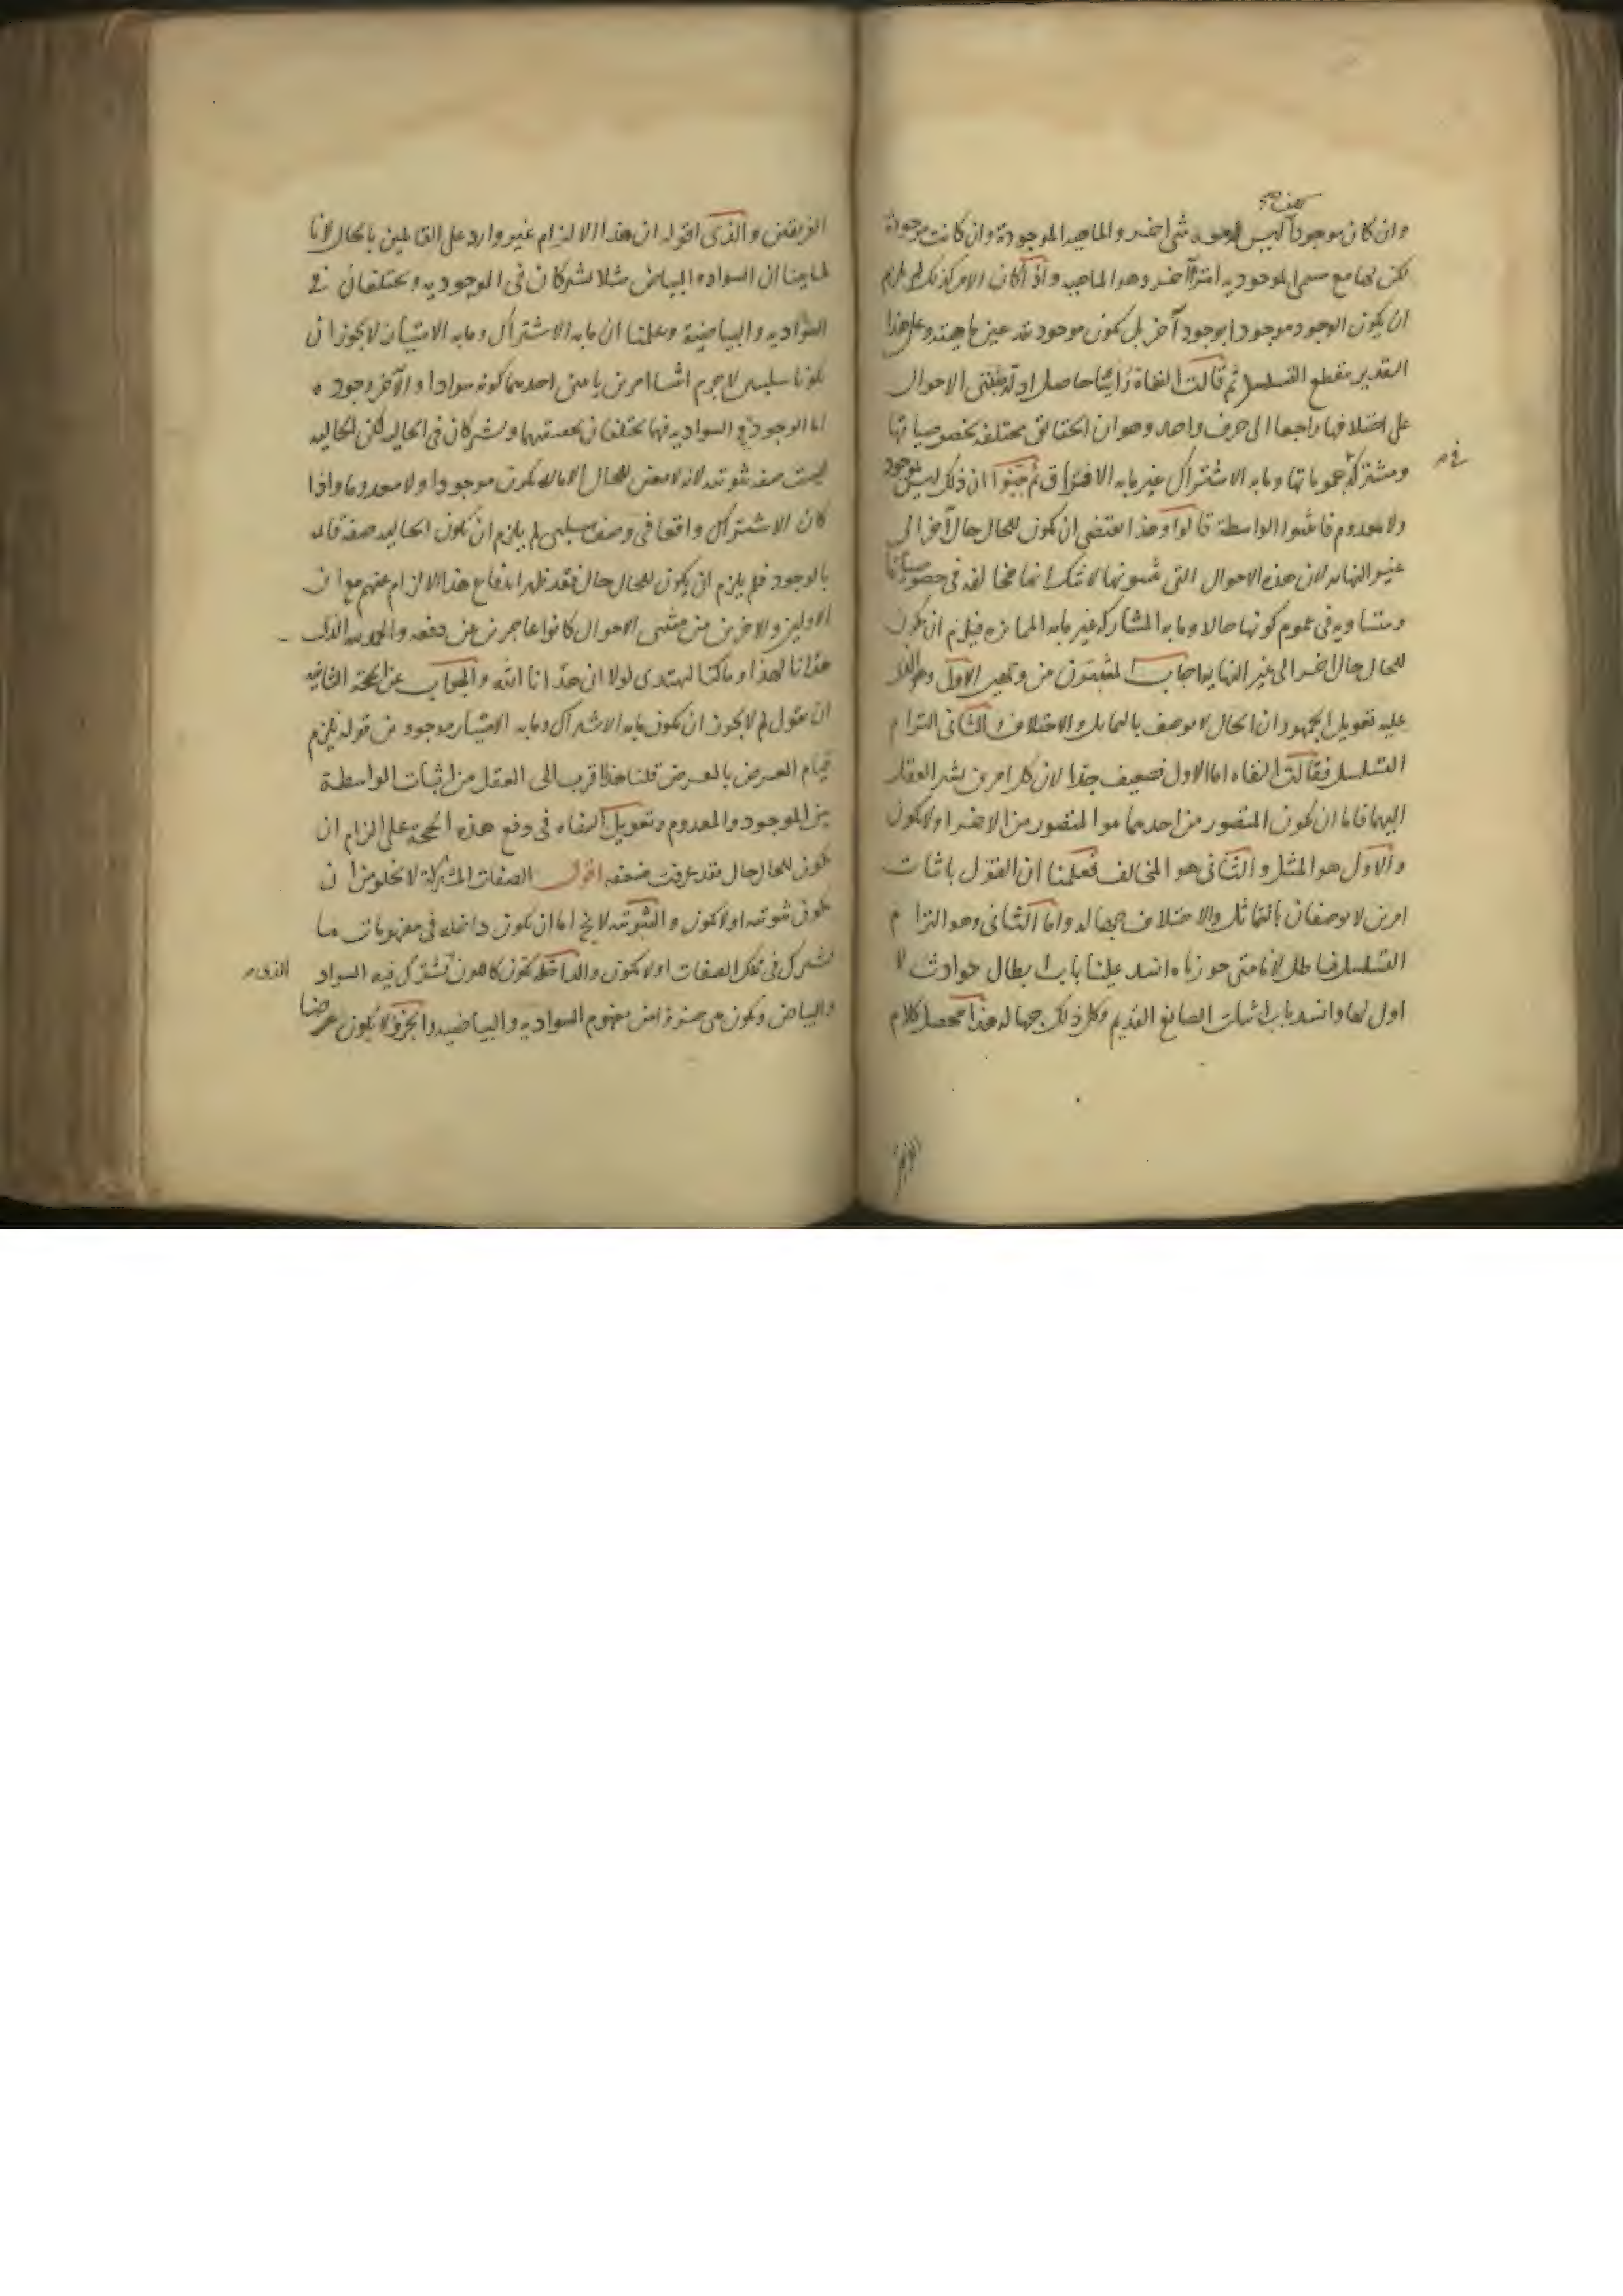 وان كان موجودا لكن ليس له مع شئ اخر والماهية الموجودة وان كانت موجودة
لكن لها مع مسمى الموجودية امرا آخر وهو الماهية واذا كان الامر كذلك لم يلزم
ان يكون الوجود موجودا بوجود آخر بل يكون موجوديته عين ماهيته وعلى هذا
التقدير ينقطع التسلسل ثم قالت النفاة راينا حاصل ادلة مثبتى الاحوال
على اختلافها راجعا الى حرف واحد وهو ان الحقائق مختلفة بخصوصياتها
ومشتركة فى عموماتها وما به الاشتراك غير ما به الافتراق ثم بينوا ان ذلك ليس بموجود
ولا معدوم فاثبتوا الواسطة قالوا وهذا يقتضى ان يكون للحال حال آخر الى
غير النهاية لان هذه الاحوال التى تثبتونها لا شك انها متخالفة فى خصوصياتها
ومتساوية فى عموم كونها حالا وما به المشاركة غير ما به الممايزة فيلزم ان يكون
للحال حال اخر الى غير النهاية اجاب المثبتون من وجهين الاول وهو الذى
عليه تعويل الجمهور ان الحال لا يوصف بالتماثل والاختلاف والثانى التزام
التسلسل فقالت النفاة اما الاول فضعيف جدا لان كل امرين يشير العقل
اليهما فاما ان يكون المتصور من احدهما هو المتصور من الاخر او لا يكون
والاول هو المثل والثانى هو المخالف فعلمنا ان القول باثبات
امرين لا يوصفان بالتماثل والاختلاف جهالة واما الثانى وهو التزام
التسلسل فباطل لانا متى جوزناه انسد علينا باب ابطال حوادث لا
اول لها وانسد باب اثبات الصانع القديم وكل ذلك جهالة هذا محصل كلام
الفريقين والذى اقوله ان هذا الالزام غير وارد على القائلين بالحال لانا
لما بينا ان السواد والبياض مثلا يشتركان فى الموجودية ويختلفان فى
السوادية والبياضية وعلمنا ان ما به الاشتراك وما به الامتياز لا يجوز ان
يكونا سلبيين لا جرم اثبتنا امرين ثابتين احدهما كونه سوادا والآخر وجوده
اما الوجود والسوادية فهما يختلفان بحقيقتهما ويشتركان فى الحالية لكن الحالية
ليست صفة ثبوتية لانه لا معنى للحال الا ما لا يكون موجودا ولا معدوما واذا
كان الاشتراك واقعا فى وصف سلبى لم يلزم ان يكون الحالية صفة قائمة
بالوجود فلم يلزم ان يكون للحال حال فقد ظهر اندفاع هذا الالزام عنهم مع ان
الاولين والاخرين من مثبتى الاحوال كانوا عاجزين عن دفعه والحمد لله الذى
هدانا لهذا وما كنا لنهتدى لولا ان هدانا الله والجواب عن الحجة الثانية
ان نقول لم لا يجوز ان يكون ما به الاشتراك وما به الامتياز موجودين قوله يلزم
قيام العرض بالعرض قلنا هذا اقرب الى العقل من اثبات الواسطة
بين الموجود والمعدوم وتعويل النفاة فى دفع هذه الحجة على الزام ان
يكون للحال حال فقد عرفت ضعفه اقول الصفات المشتركة لا يخلو من ان
يكون ثبوتية او لا يكون والثبوتية لا يخ اما ان يكون داخلة فى مفهومات ما
يشترك فى تلك الصفات او لا يكون والداخلة يكون كاللون الذى يشترك فيه السواد
والبياض ويكون هى جزءا من مفهوم السوادية والبياضية والجزء لا يكون عرضا